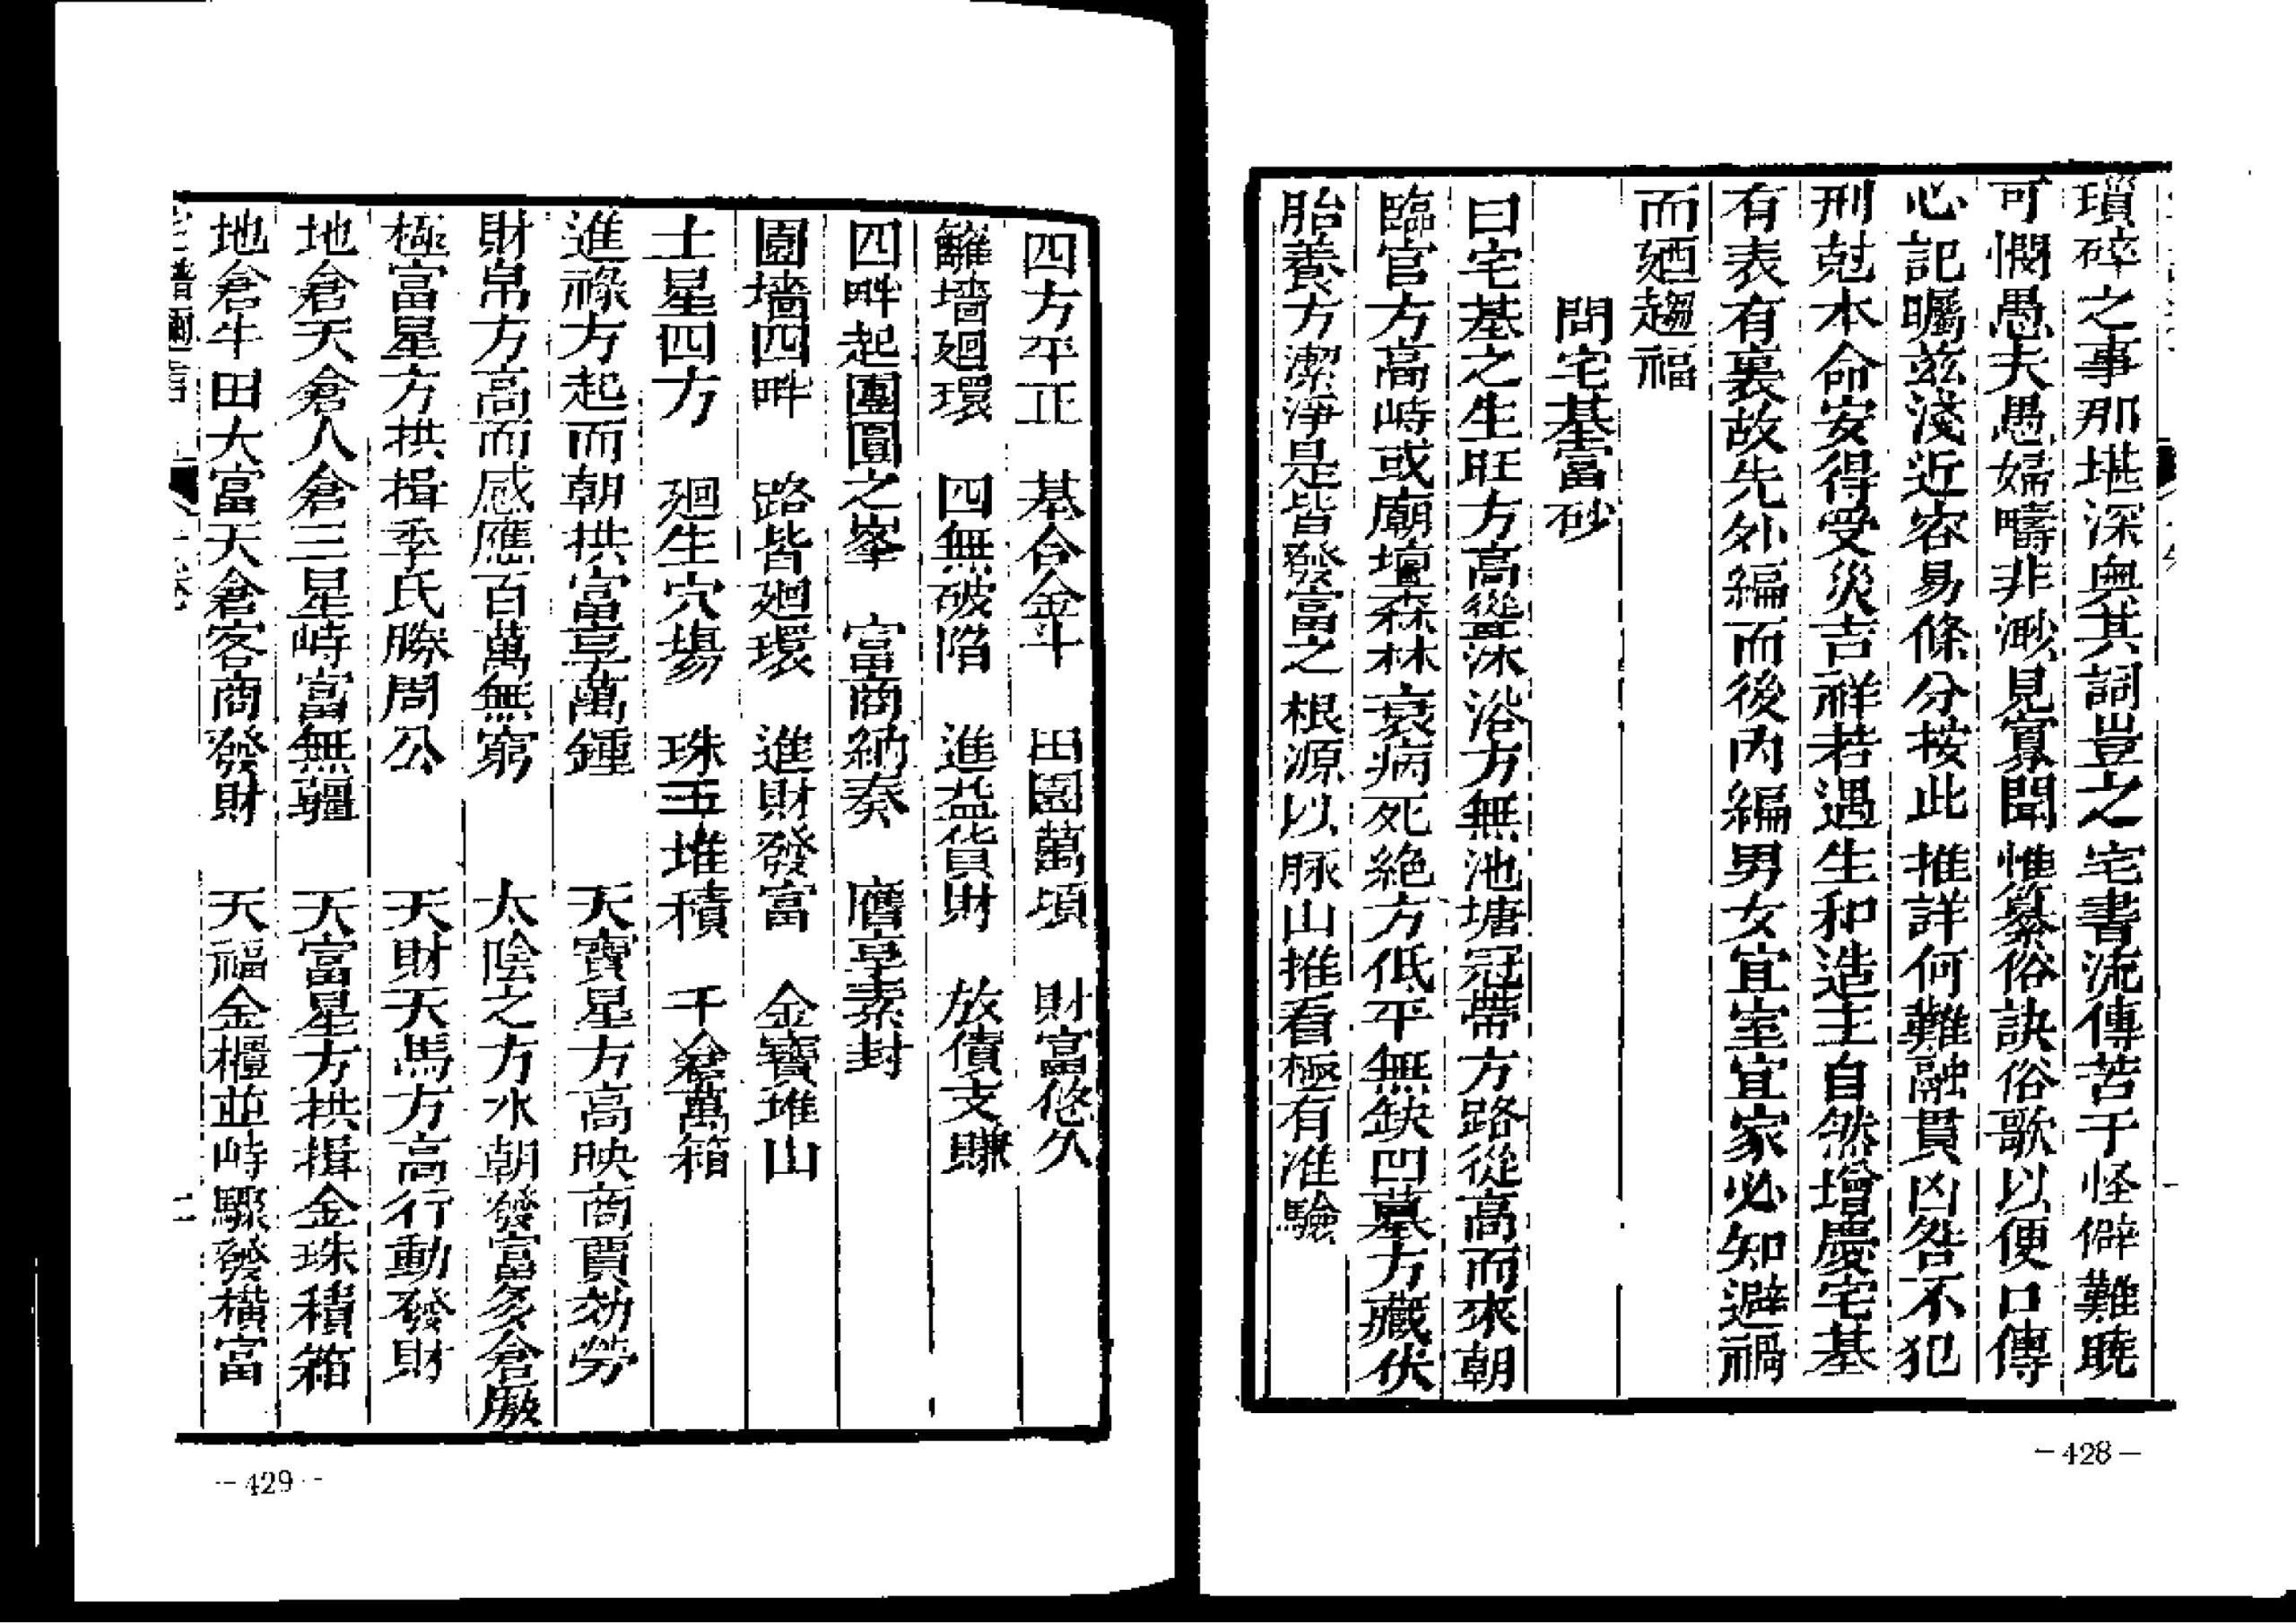 瑣碎之事那堪深奧其詞豈之宅書流傳苦于怪僻難曉
可憫愚夫愚婦疇非渺見寡聞惟纂俗訣俗歌以便口傳
心記矚茲淺近容易條分按此推詳何難融貫凶咎不犯
刑尅本命安得受災吉祥若遇生和造主自然增慶宅基
有表有裏故先外編而後內編男女宜室宜家必知避禍
而廼趨福
問宅基富砂
曰宅基之生旺方高聳沐浴方無池塘冠帶方路從高而來朝
臨官方高峙或廟壇森林衰病死絕方低平無缺凹墓方藏伏
胎養方潔淨是皆發富之根源以脉山推看極有准驗
—428—
四方平正　基合金斗　田園萬頃　財富悠久
籬墻廻環　四無破陷　進益貨財　放債支賺
四畔起團圓之峯　富商納奏　膺享素封
園墻四畔　路皆廻環　進財發富　金寶堆山
土星四方　廻生穴場　珠玉堆積　千倉萬箱
進祿方起而朝拱富享萬鍾　天寶星方高映商賈効勞
財帛方高而感應百萬無窮　太陰之方水朝發富多倉廒
極富星方拱揖季氏勝周公　天財天馬方高行動發財
地倉天倉人倉三星峙富無疆　天富星方拱揖金珠積箱
地倉牛田大富天倉客商發財　天福金櫃並峙驟發橫富
二
—429—